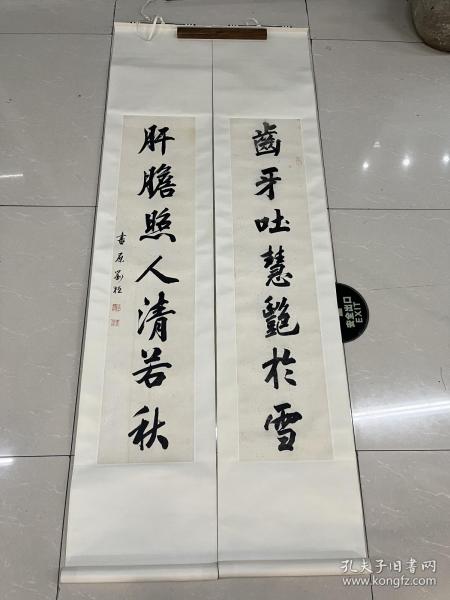 齒牙吐慧艷於雪
肝膽照人清若秋
書原劉
安全出口
EXIT
孔夫子旧书网
www.kongfz.com